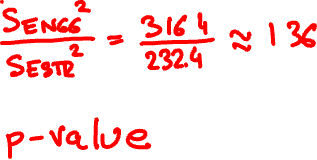 S_ENGG² / S_ESTR² = 316.4 / 232.4 ≈ 1.36
p-value